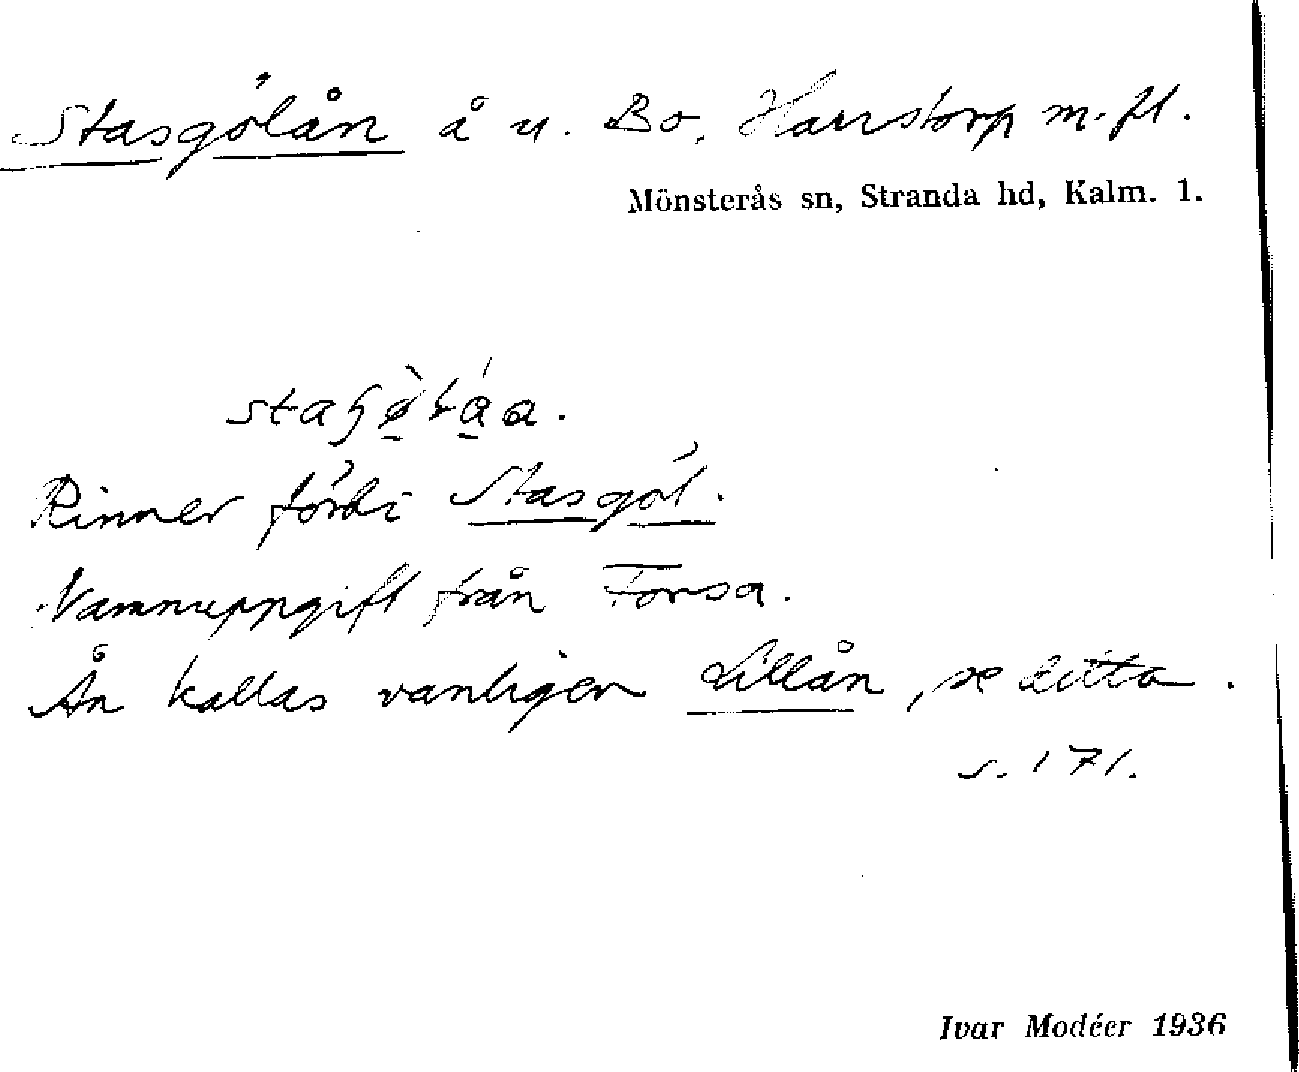 Stasgölån å u. Bo, Harrstorp m. fl.
Mönsterås sn, Stranda hd, Kalm. l.
Rinner förbi Stasgöl.
Namnuppgift från Forsa.
Ån kallas vanligen Lillån, se detta.
s. 171.
Ivar Modéer 1936